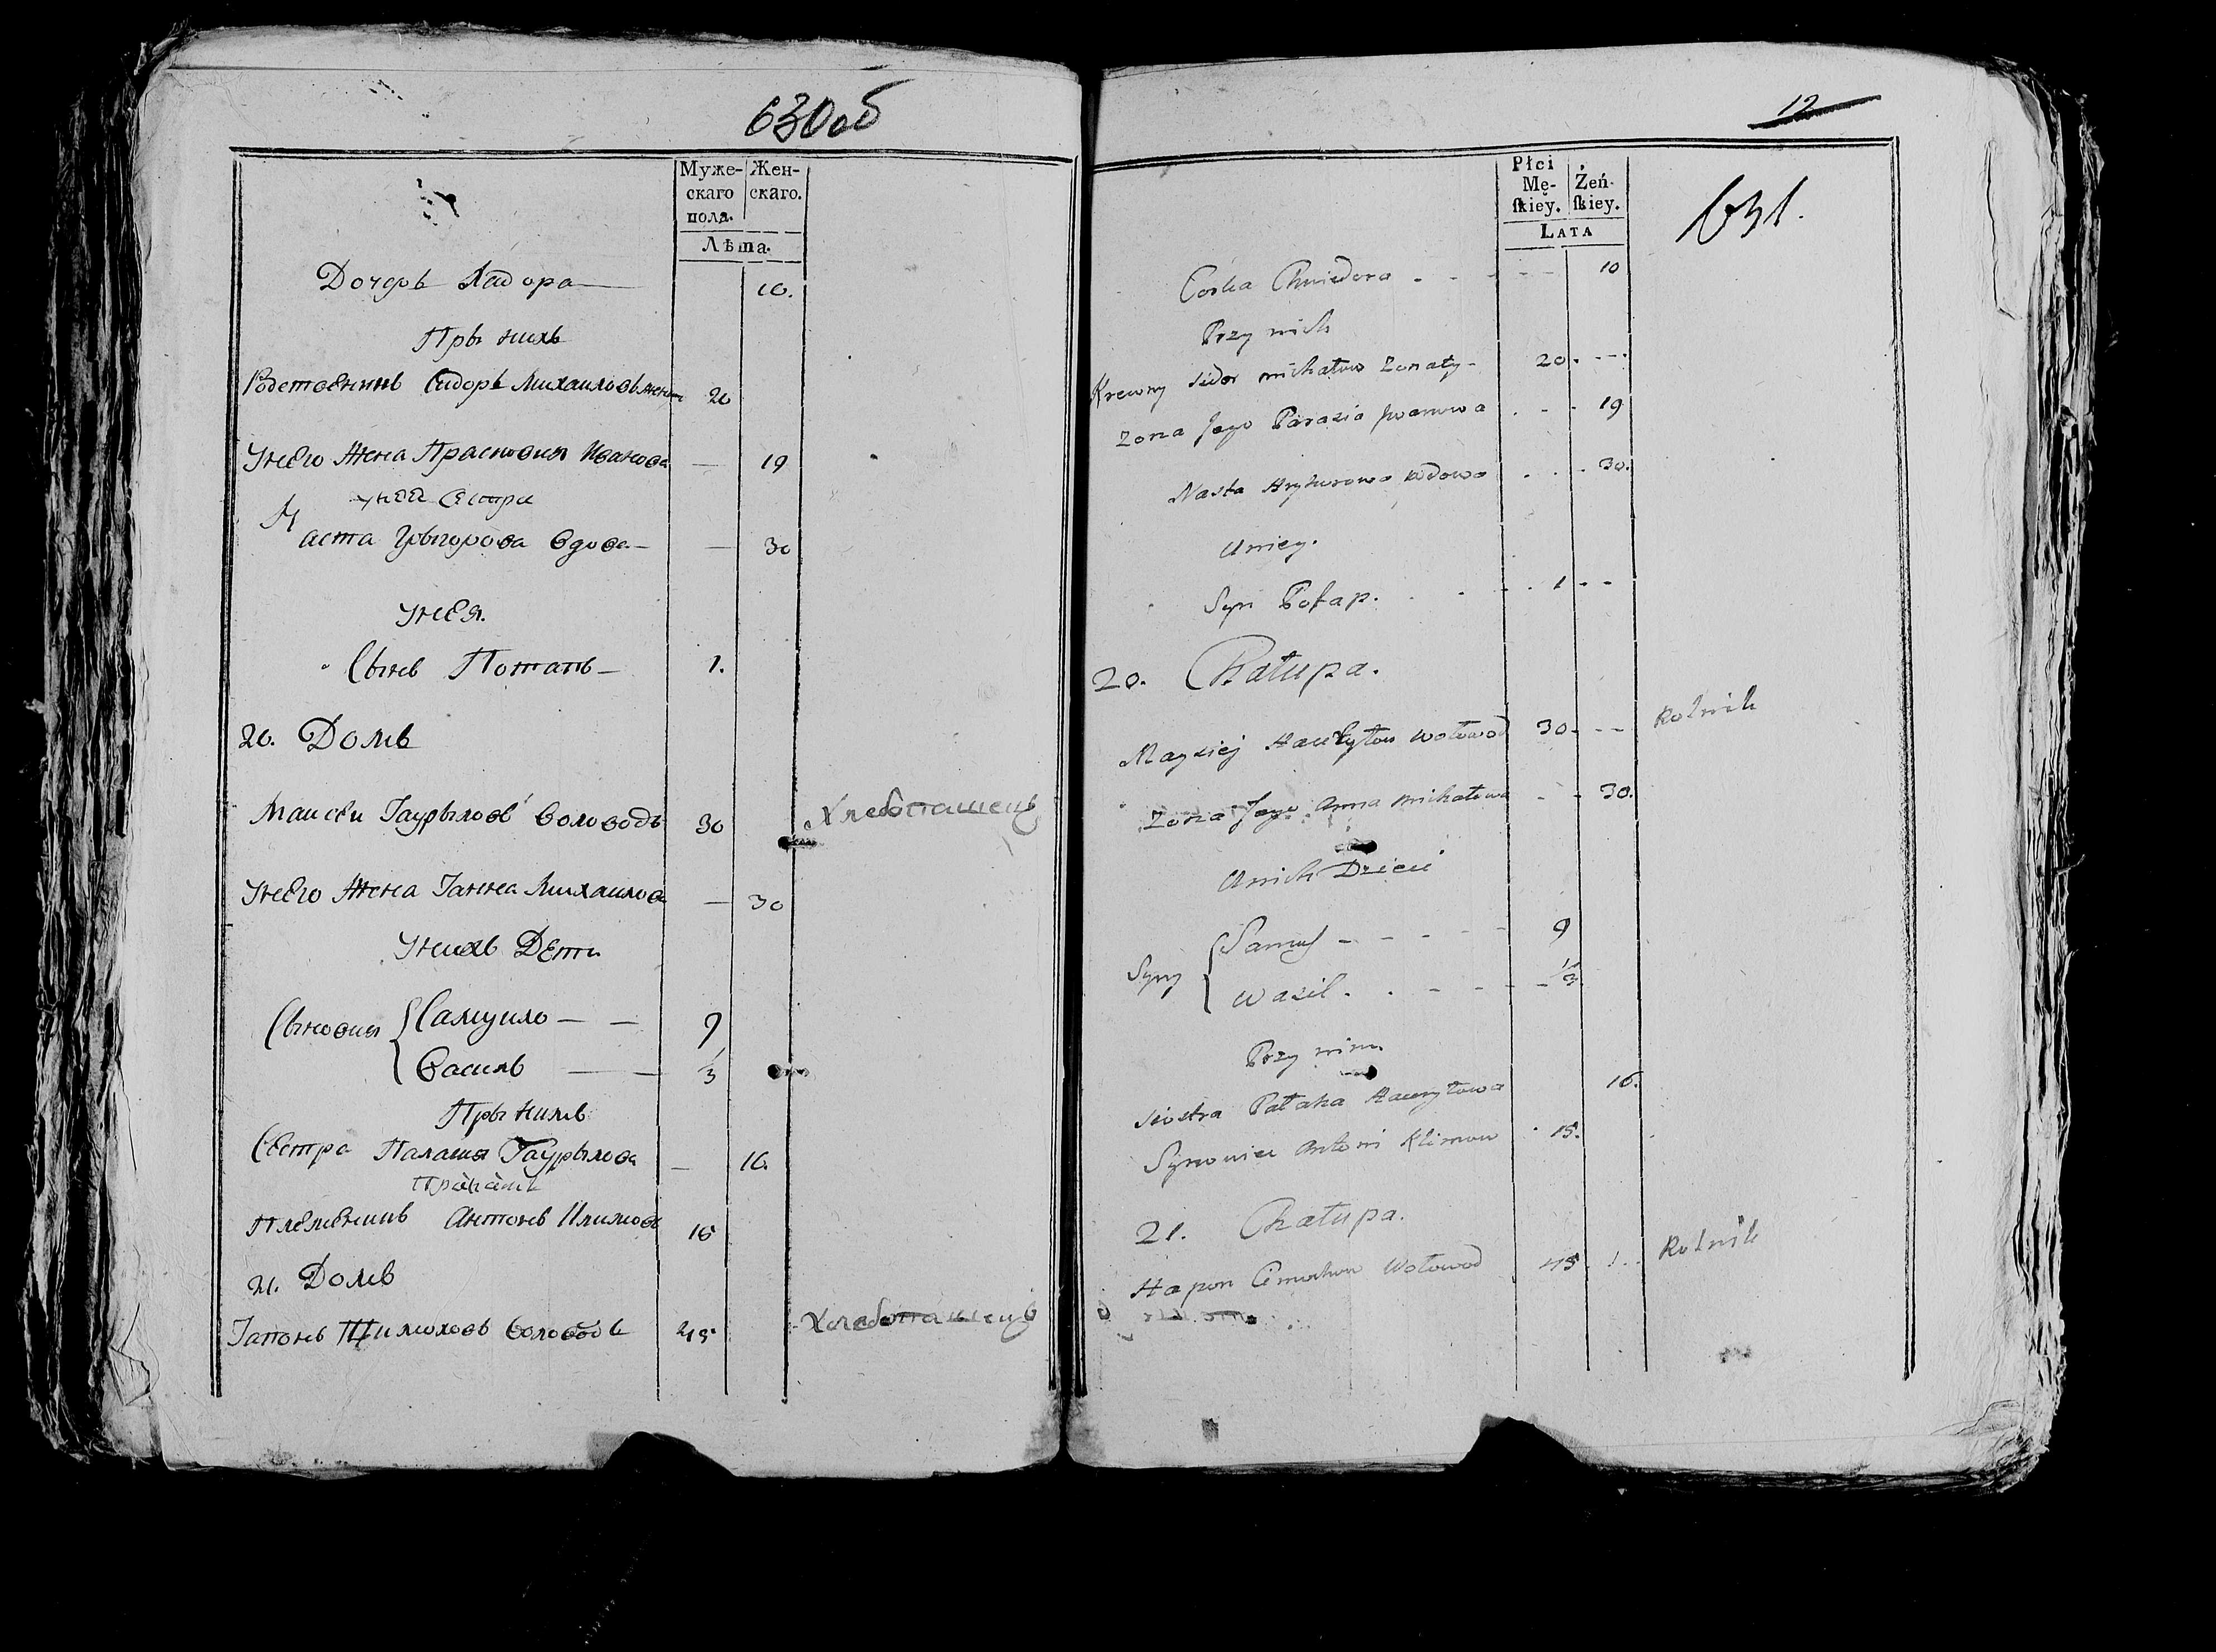 630об
Муже-
скаго
пола.
Жен-
скаго.
Лѣта.
Дочерь Хадора 10.
Пры нихъ
Родственикъ Сидоръ Михаиловъ женат 20
Унего Жена Прасковия Иванова — 19
унея Сестра
Наста Грыгорова Вдова — 30
Унея.
Сынъ Потапъ — 1.
20. Домъ
Маисеи Гаурыловъ Воловодъ 30 Хлебопашецъ
Унего Жена Ганна Михаилова — 30
Унихъ Дети
Сыновия Самуило — — 9
Василь — — 1/3
Пры нимъ
Сестра Палагия Гаурылова — 16.
Племеникъ Антонъ Климов 15
21. Домъ
Гапонъ Тимоховъ Воловодъ 45 Хлебопашецъ
12
631.
Płci
Mę-
skiey.
Żeń-
skiey.
LATA
Corka Chwiedora - - - - 10
Przy nich
Krewny Sidor michałow Zonaty - 20. - - -
Zona Jego Parasia Iwanowa . - - 19
Nasta Hryhurowa wdowa . . - 30.
Uniey.
Syn Potap. . . - . 1 - -
20. Chałupa.
Mayziej Hawryłow wołowod 30. - - Rolnik
Zona Jego Anna michałowa - - 30.
Unich Dzieci
Syny
Samuś - - - - - 9
Wasil . . - - - - 1/3
Przy nim.
siostra Pałaha Hawryłowa 16.
Synowiec Antoni Klimow . 15.
21. Chałupa.
Hapon Cimochow Wołowod 45 . ! . Rolnik